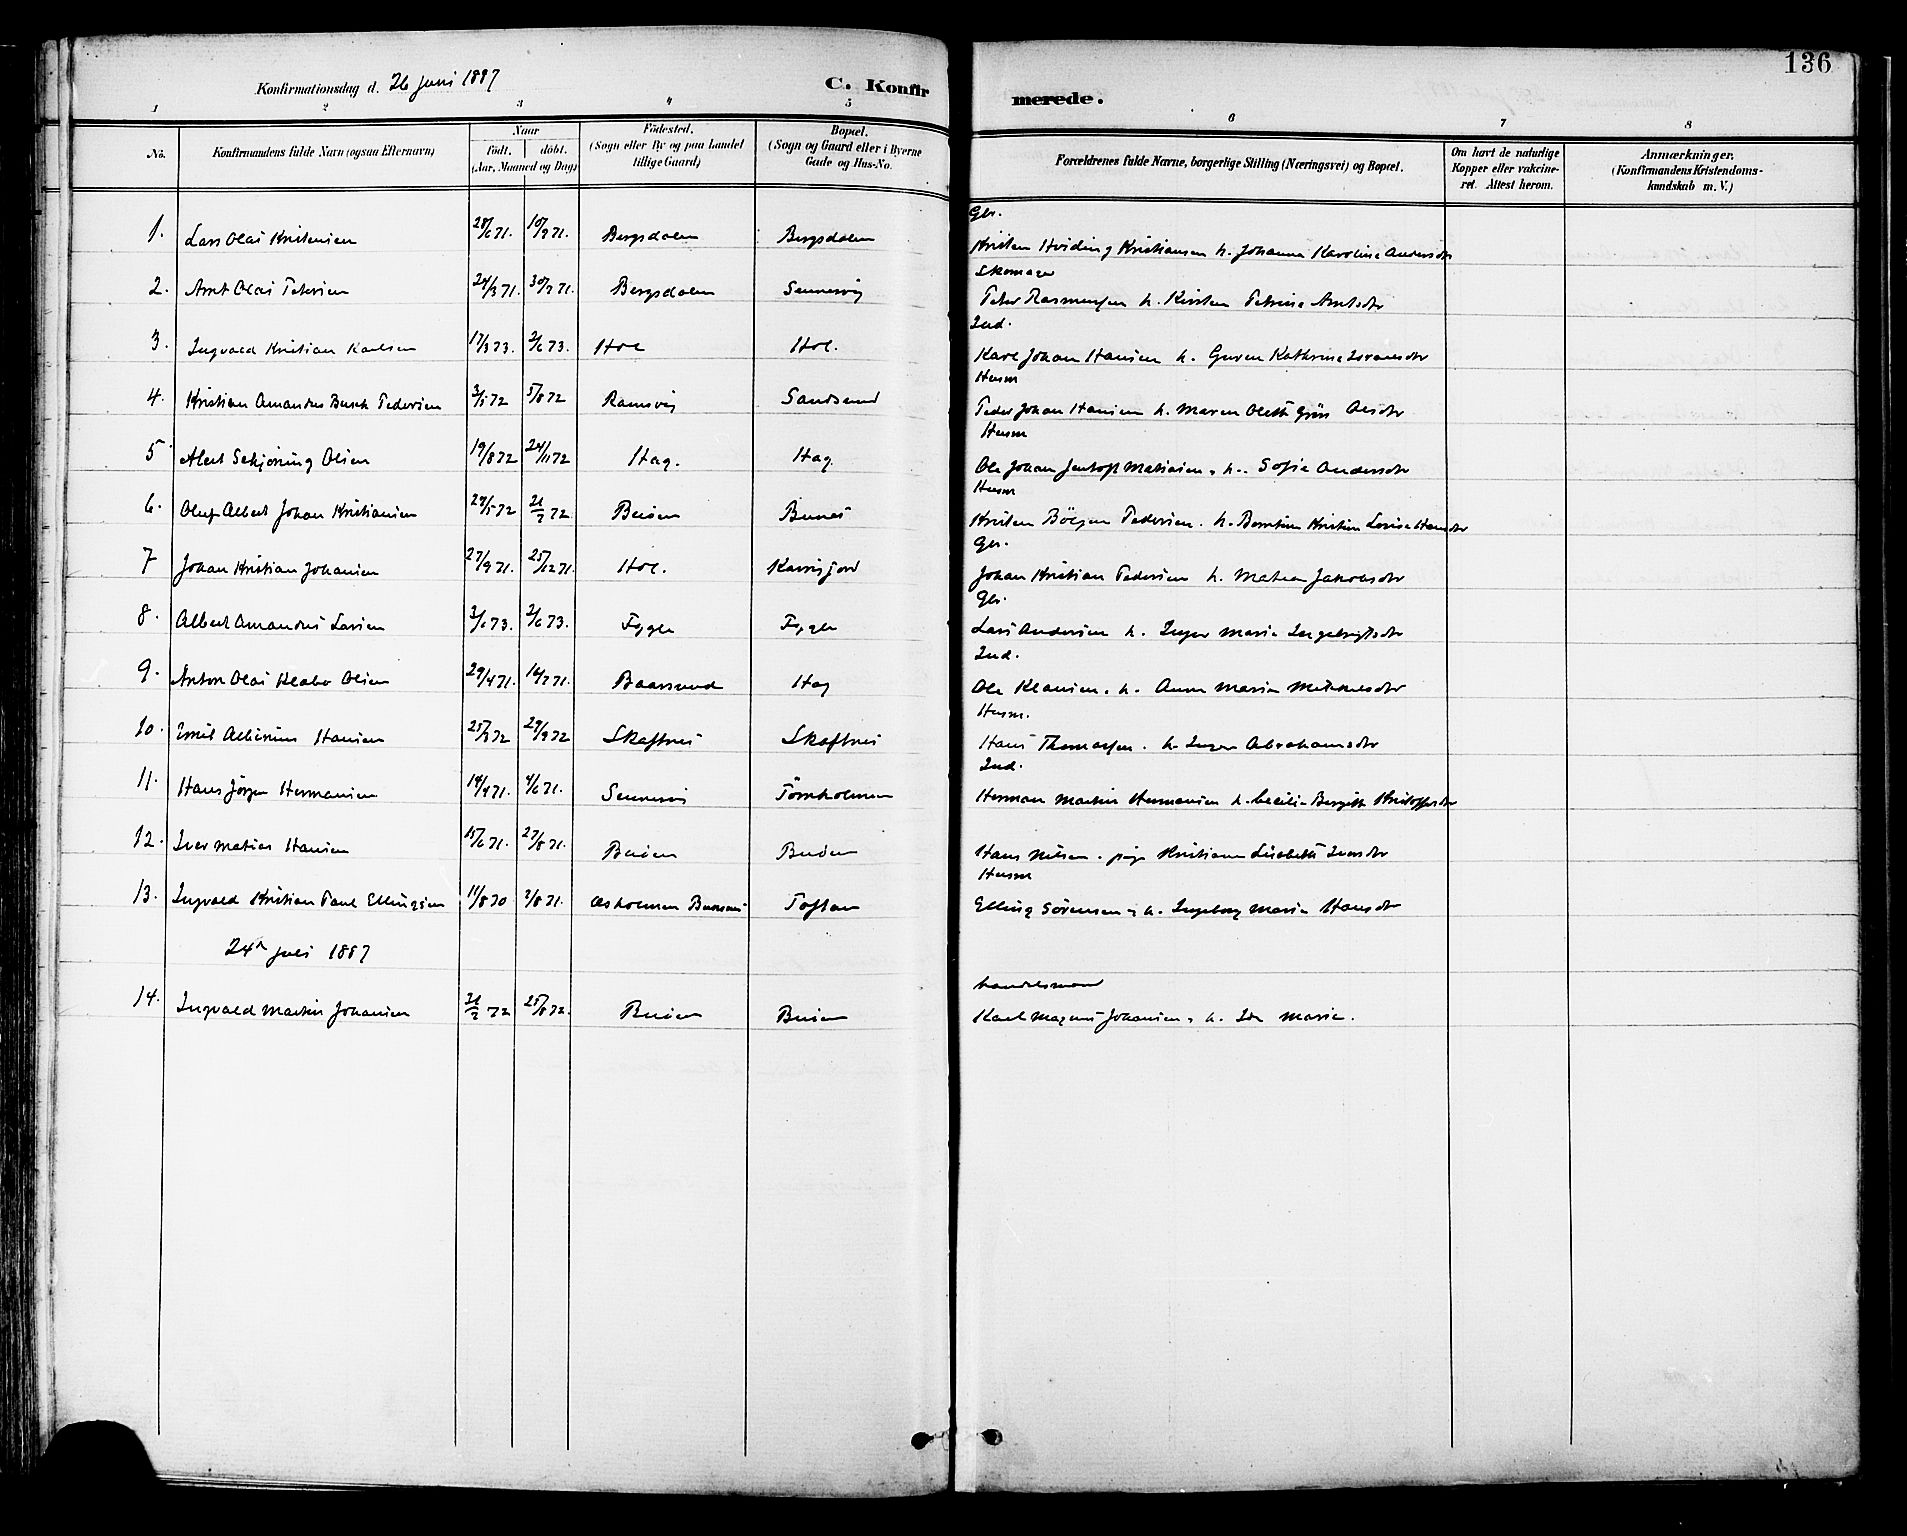 136
Konfirmationsdag d. 26 Juni 1887
C. Konfirmerede.
1 2 3 4 5 6 7 8
No. Konfirmandens fulde Navn (ogsaa Efternavn) Naar födt. döbt. (Aar, Maaned og Dag) Födested. (Sogn eller By og paa Landet tillige Gaard) Bopæl. (Sogn og Gaard eller i Byerne Gade og Hus-No. Forældrenes fulde Navne, borgerlige Stilling (Næringsvei) og Bopæl. Om havt de naturlige Kopper eller vakcineret. Attest herom. Anmærkninger. (Konfirmandens Kristendomskundskab m. V.)
Gbr.
1. Lars Olai Kristensen 28/6 71. 10/9 71. Bergsdalen Bergsdalen Kristen Hviding Kristiansen h. Johanna Karoline Andersdtr
Skomager
2. Arnt Olai Petersen 24/3 71. 30/7 71. Bergsdalen Sennesvig Peter Rasmussen h. Kirsten Petrine Arntsdtr
Ind.
3. Ingvald Kristian Karlsen 17/3 73. 2/6 73. Hol Hol. Karl Johan Hansen h. Guren Kathrine Iversdtr
Husm
4. Kristian Amandus Busch Pedersen 3/5 72 5/8 72 Ramsvig Sandsund Peder Johan Hansen h. Maren Oleth Olsdtr
Husm
5. Albert Schjöning Olsen 19/8 72 24/11 72 Hag. Hag. Ole Johan Jentoft Matiasen, h. Sofie Andersdtr
Husm
6. Oluf Albert Johan Kristiansen 27/5 72 21/7 72 Buöen Bunes Kristen Pedersen. h. Kristine Lovise Hansdtr
Gbr.
7 Johan Kristian Johansen 27/9 71. 25/12 71. Hol. Johan Kristian Pedersen h. Matea Jakobsdtr
Gbr.
8. Albert Amandus Larsen 3/1 73. 2/6 73. Fygle Fygle Lars Andersen h. Inger Maria Ingebrigtsdtr
Ind.
9. Anton Olai Klabo Olsen 29/4 71. 16/7 71. Baarsund Hag Ole Klausen. h. Anna Maria Mikkelsdtr
Husm.
10. Emil Albinius Hansen 25/7 72 29/9 72 Skaftnes Skaftnes Hans Thomassen. h Inger Abrahamsdtr
Ind.
11. Hans Jörgen Hermansen 14/4 71. 4/6 71. Sennesvig Törnholmen Herman Martin Hermansen h. Cecilie Bergitte Kristoffersdtr
12. Iver Matias Hansen 15/6 71. 27/8 71. Buöen Buöen Hans Nilsen. pige Kristiane Lisebeth Iversdtr
Husm
13. Ingvald Kristian Paul Ellingsen 11/8 70 7/8 71. Toftan Elling Sörensen, h. Ingeborg Maria Hansdtr
24de Juli 1887
handelsmand
14. Ingvald Martin Johansen 21/2 72 25/8 72. Buöen Buöen Karl Magnus Johansen, h. Ida Marie.